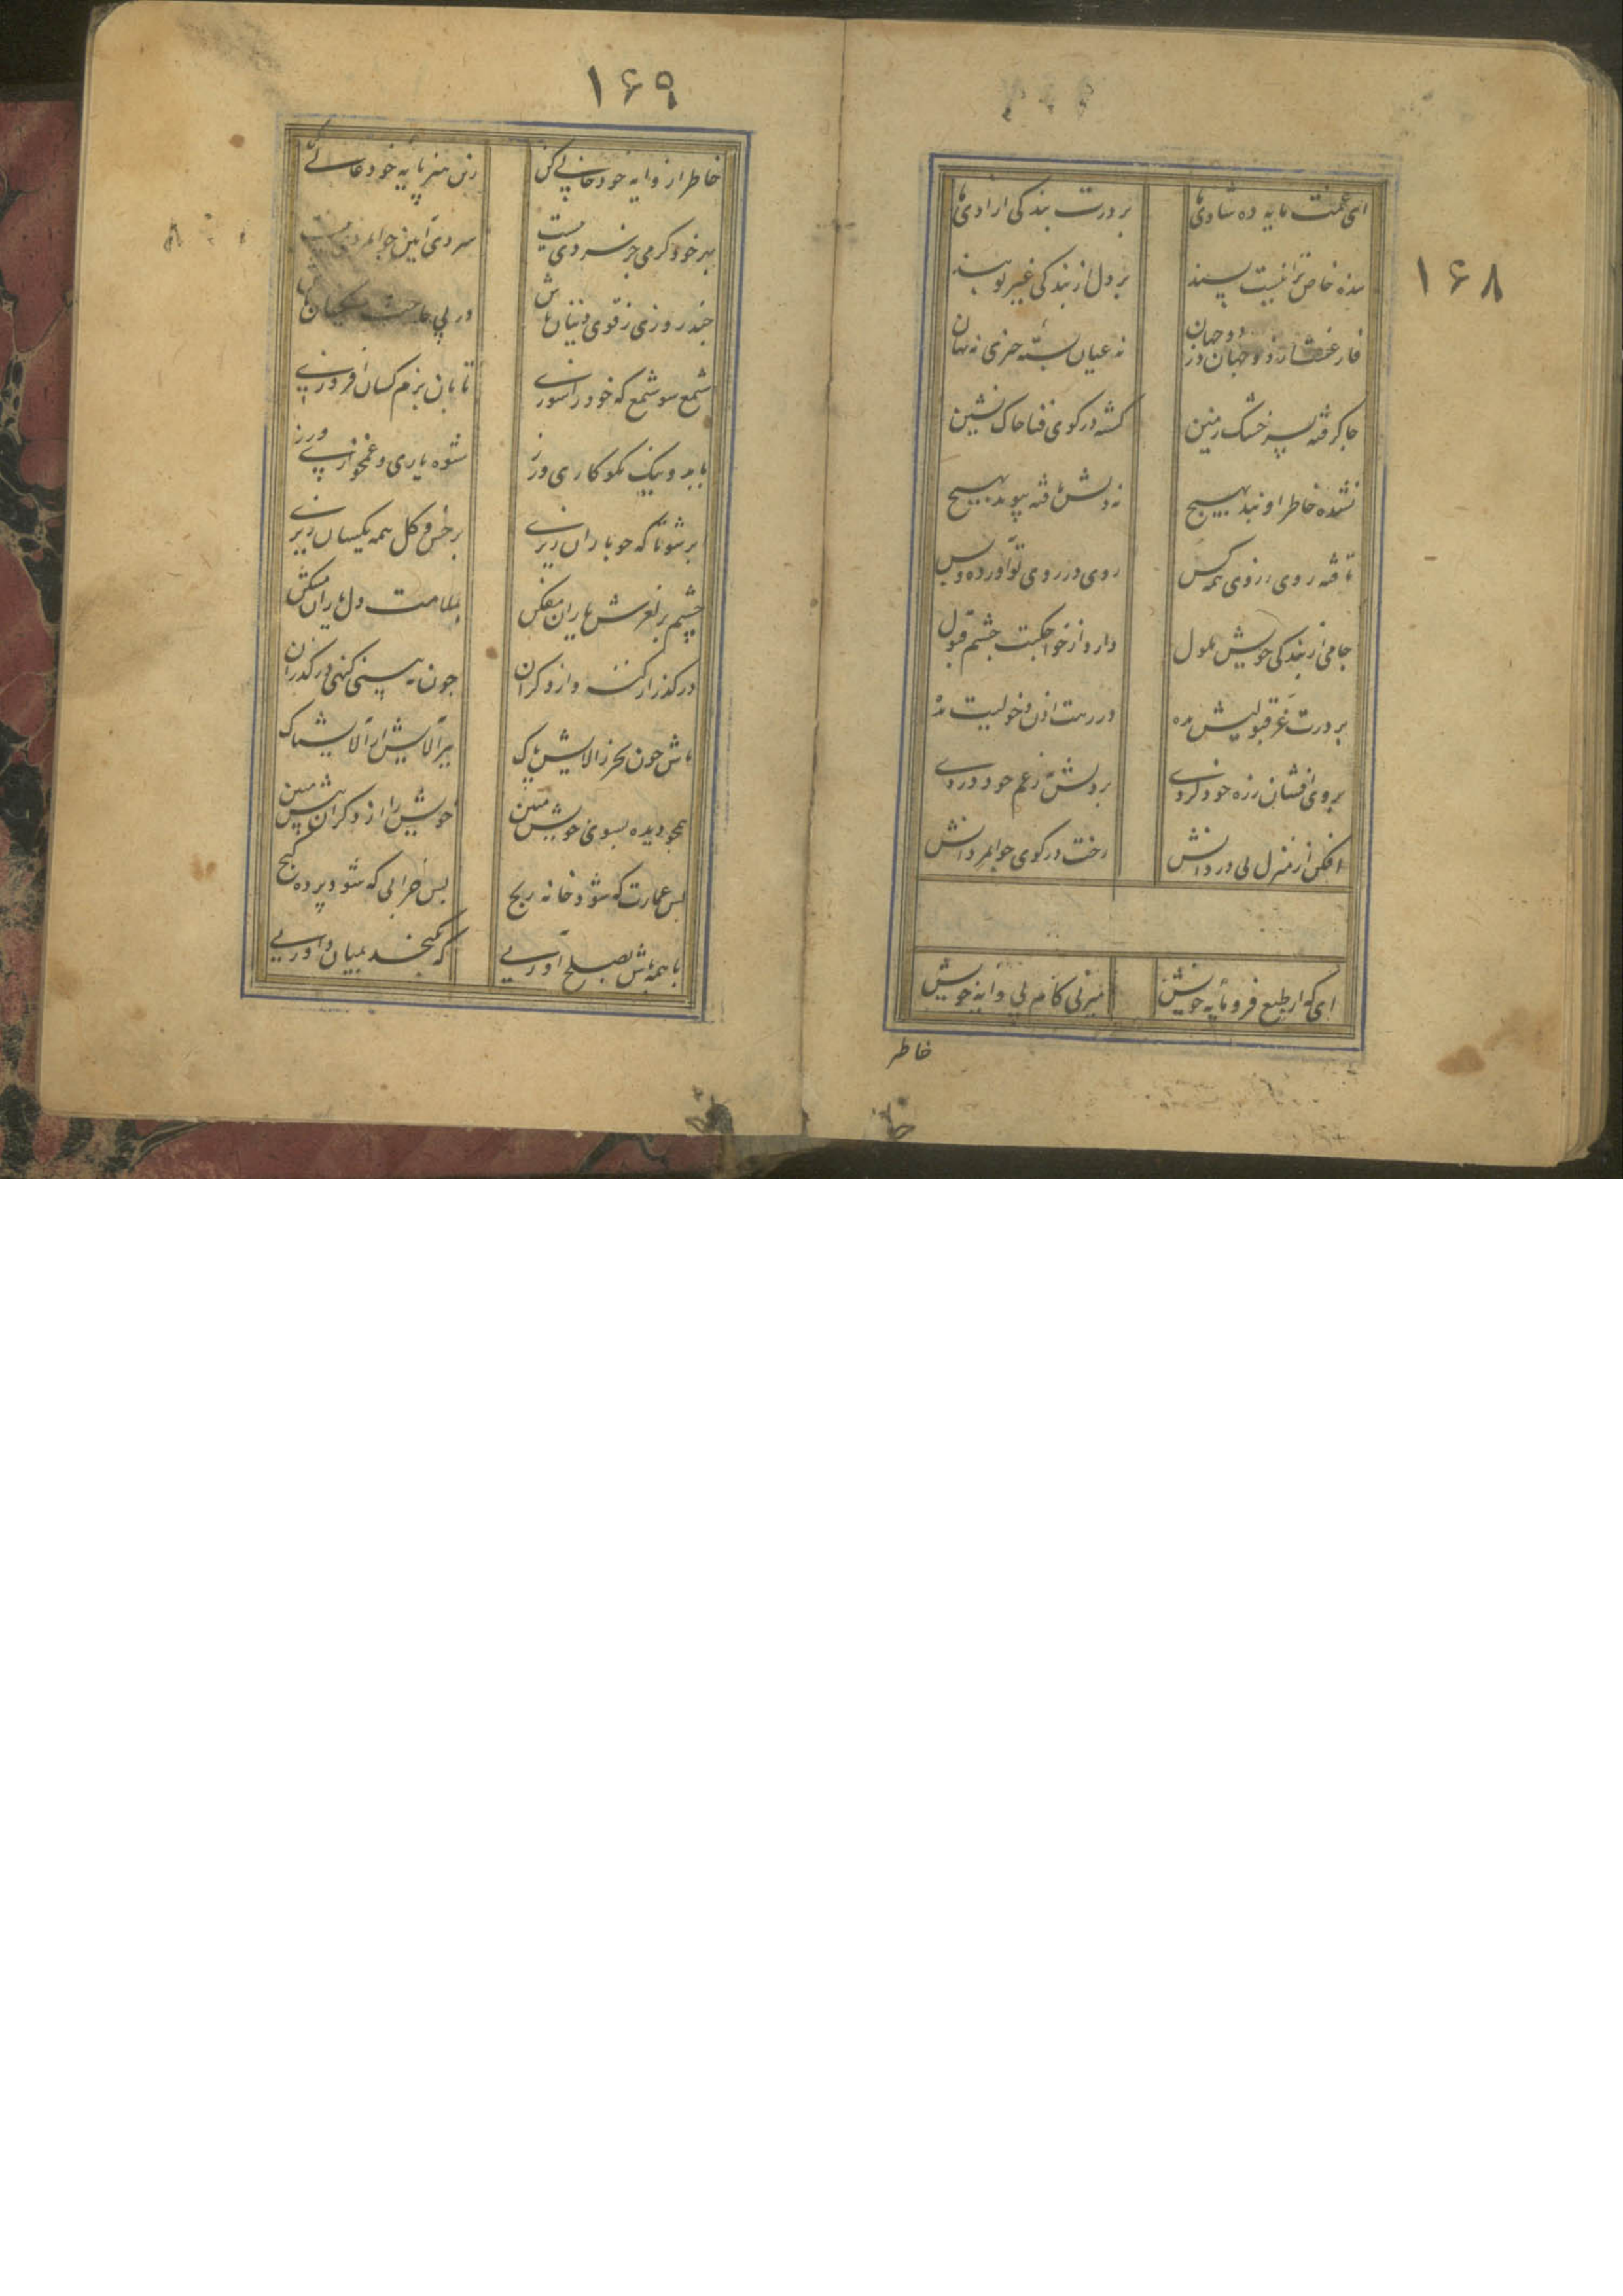 ۱۶۸
ای غمت مایه ده شادیها بر درت بندگی ازادیها
بنده خاص ترا نیست پسند بر دل از بندگی غیر تو بند
دو جهان
فارغست از دو جهان در نه عیان بسته چیزی نه نهان
جا گرفته بسر خشک زمین گشته در کوی فنا خاک نشین
نشده خاطر او بند بهیچ نه دلش یافته پیوند بهیچ
تافته روی ز روی همه کس روی در روی تو آورده و بس
جامی از بندگی خویش ملول دارد از خواجگیت چشم قبول
بر درت عز قبولیش بده در رهت اذن دخولیش بده
بروی افشان ز ره خود گردی بر دلش نه ز غم خود دردی
افکن از منزل بی دردانش رخت در کوی جوانمردانش
ای که از طبع فرومایه خویش میزنی گام پی وایه خویش
خاطر
۱۶۹
خاطر از وایه خود خالی کن زین هنر پایه خود عالی کن
بهر خود گرمی جز سردی نیست سردی آیین جوانمردی نیست
چند روزی ز قوی دینان باش در پی حاجت مسکینان باش
شمع شو شمع که خود را سوزی تا بان بزم کسان افروزی
با بد و نیک نکوکاری ورز شیوه یاری و غمخواری ورز
ابر شو تا که چو باران ریزی بر خس و گل همه یکسان ریزی
چشم بر لغزش یاران مفکن بملامت دل یاران مشکن
در گذر از گنه و از دگران چون ببینی گنهی در گذران
باش چون بحر ز آلایش پاک ببر آلایش از آلایشناک
همچو دیده بسوی خویش مبین خویش را از دگران پیش مبین
بس عمارت که شود خانه رنج بس خرابی که شود پرده گنج
با همه باش بصلح آوریی که نگنجد بمیان داوریی